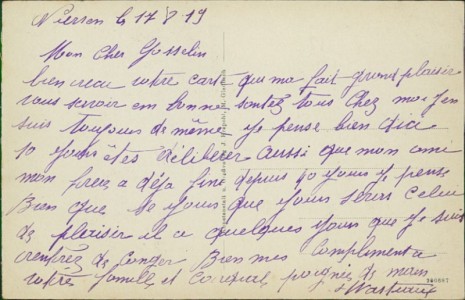 Niersen le 17/8 19
Mon Cher Gosselin
bien recu votre carte que ma fait grand plaisir
vous savoir em bonne santez tous Chez moi j'en
suis toujours de même je pense bien dici
10 jours êtes déliberer aussi que mon ami
mon frere a déja fine depuis 10 jours je pense
Bien que le jours que j'ourais serais Celui
de plaisir il a quelques jours que je suis
rentrez de Conger Bien mes Compliment a
votre famille et cordial poignée de main